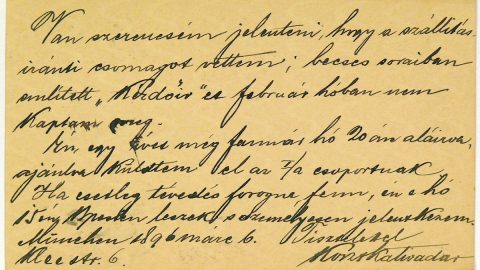 Van szerencsém jelenteni, hogy a szállítás-
iránti csomagot vettem; becses soraiban
említett „Kérdőív" et február hóban nem
Kaptam meg.
Én, egy ívet még január hó 20án aláirva,
ajánlva küldtem el az I/a csoportnak.
Ha esetleg tévedés forogna fenn, én e hó
15én Pesten leszek, s személyesen jelentkezem.
München 1896 márc 6. Tisztelettel
Kleestr. 6.